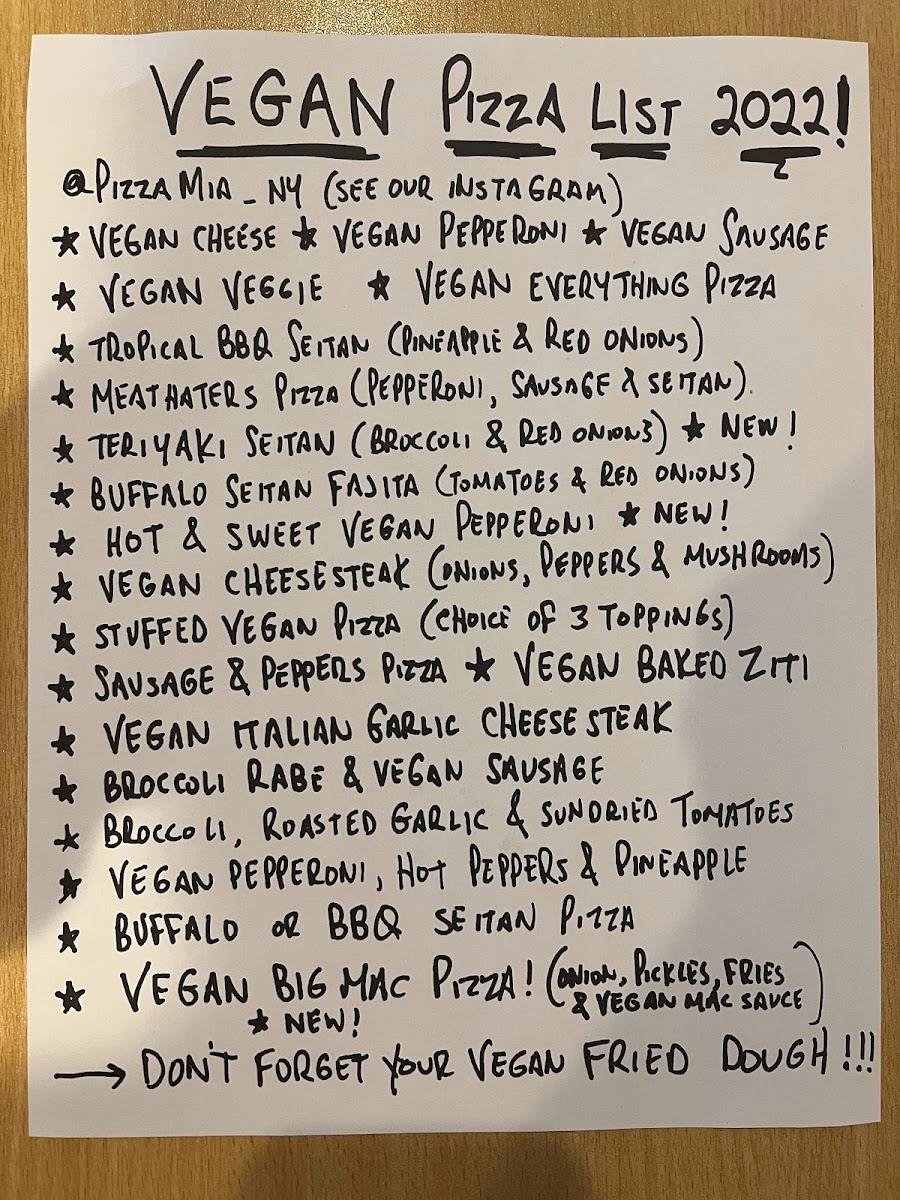 VEGAN PIZZA LIST 2022!
@PIZZAMIA_NY (SEE OUR INSTAGRAM)
★ VEGAN CHEESE ★ VEGAN PEPPERONI ★ VEGAN SAUSAGE
★ VEGAN VEGGIE ★ VEGAN EVERYTHING PIZZA
★ TROPICAL BBQ SEITAN (PINEAPPLE & RED ONIONS)
★ MEATHATERS PIZZA (PEPPERONI, SAUSAGE & SEITAN).
★ TERIYAKI SEITAN (BROCCOLI & RED ONIONS) ★ NEW!
★ BUFFALO SEITAN FAJITA (TOMATOES & RED ONIONS)
★ HOT & SWEET VEGAN PEPPERONI ★ NEW!
★ VEGAN CHEESESTEAK (ONIONS, PEPPERS & MUSHROOMS)
★ STUFFED VEGAN PIZZA (CHOICE OF 3 TOPPINGS)
★ SAUSAGE & PEPPERS PIZZA ★ VEGAN BAKED ZITI
★ VEGAN ITALIAN GARLIC CHEESESTEAK
★ BROCCOLI RABE & VEGAN SAUSAGE
★ BROCCOLI, ROASTED GARLIC & SUNDRIED TOMATOES
★ VEGAN PEPPERONI, HOT PEPPERS & PINEAPPLE
★ BUFFALO OR BBQ SEITAN PIZZA
★ VEGAN BIG MAC PIZZA! (ONION, PICKLES, FRIES
& VEGAN MAC SAUCE)
★ NEW!
→ DON'T FORGET YOUR VEGAN FRIED DOUGH!!!